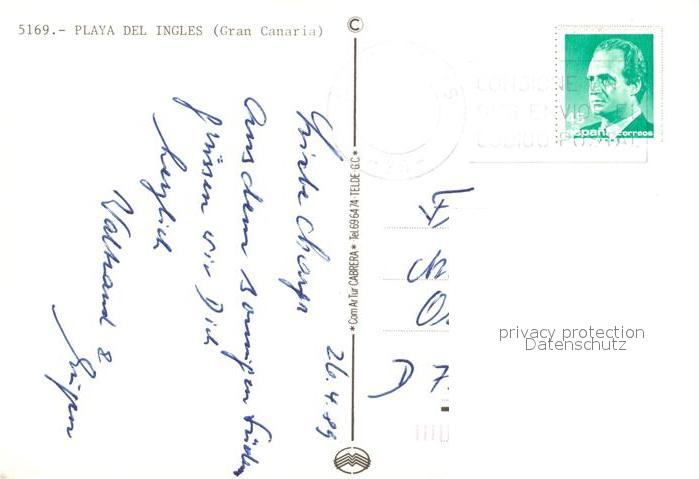 5169.- PLAYA DEL INGLES (Gran Canaria)
©
26.4.89
Liebe
Aus dem sonnigen Süden
grüssen wir Dich
herzlich
Waltraud &
* Com Ar Tur CABRERA * Tel. 69 64 74 - TELDE G.C. *
CONSIGNE
SUS ENVIOS EL
CODIGO POSTAL
45
españa correos
D 7
privacy protection
Datenschutz